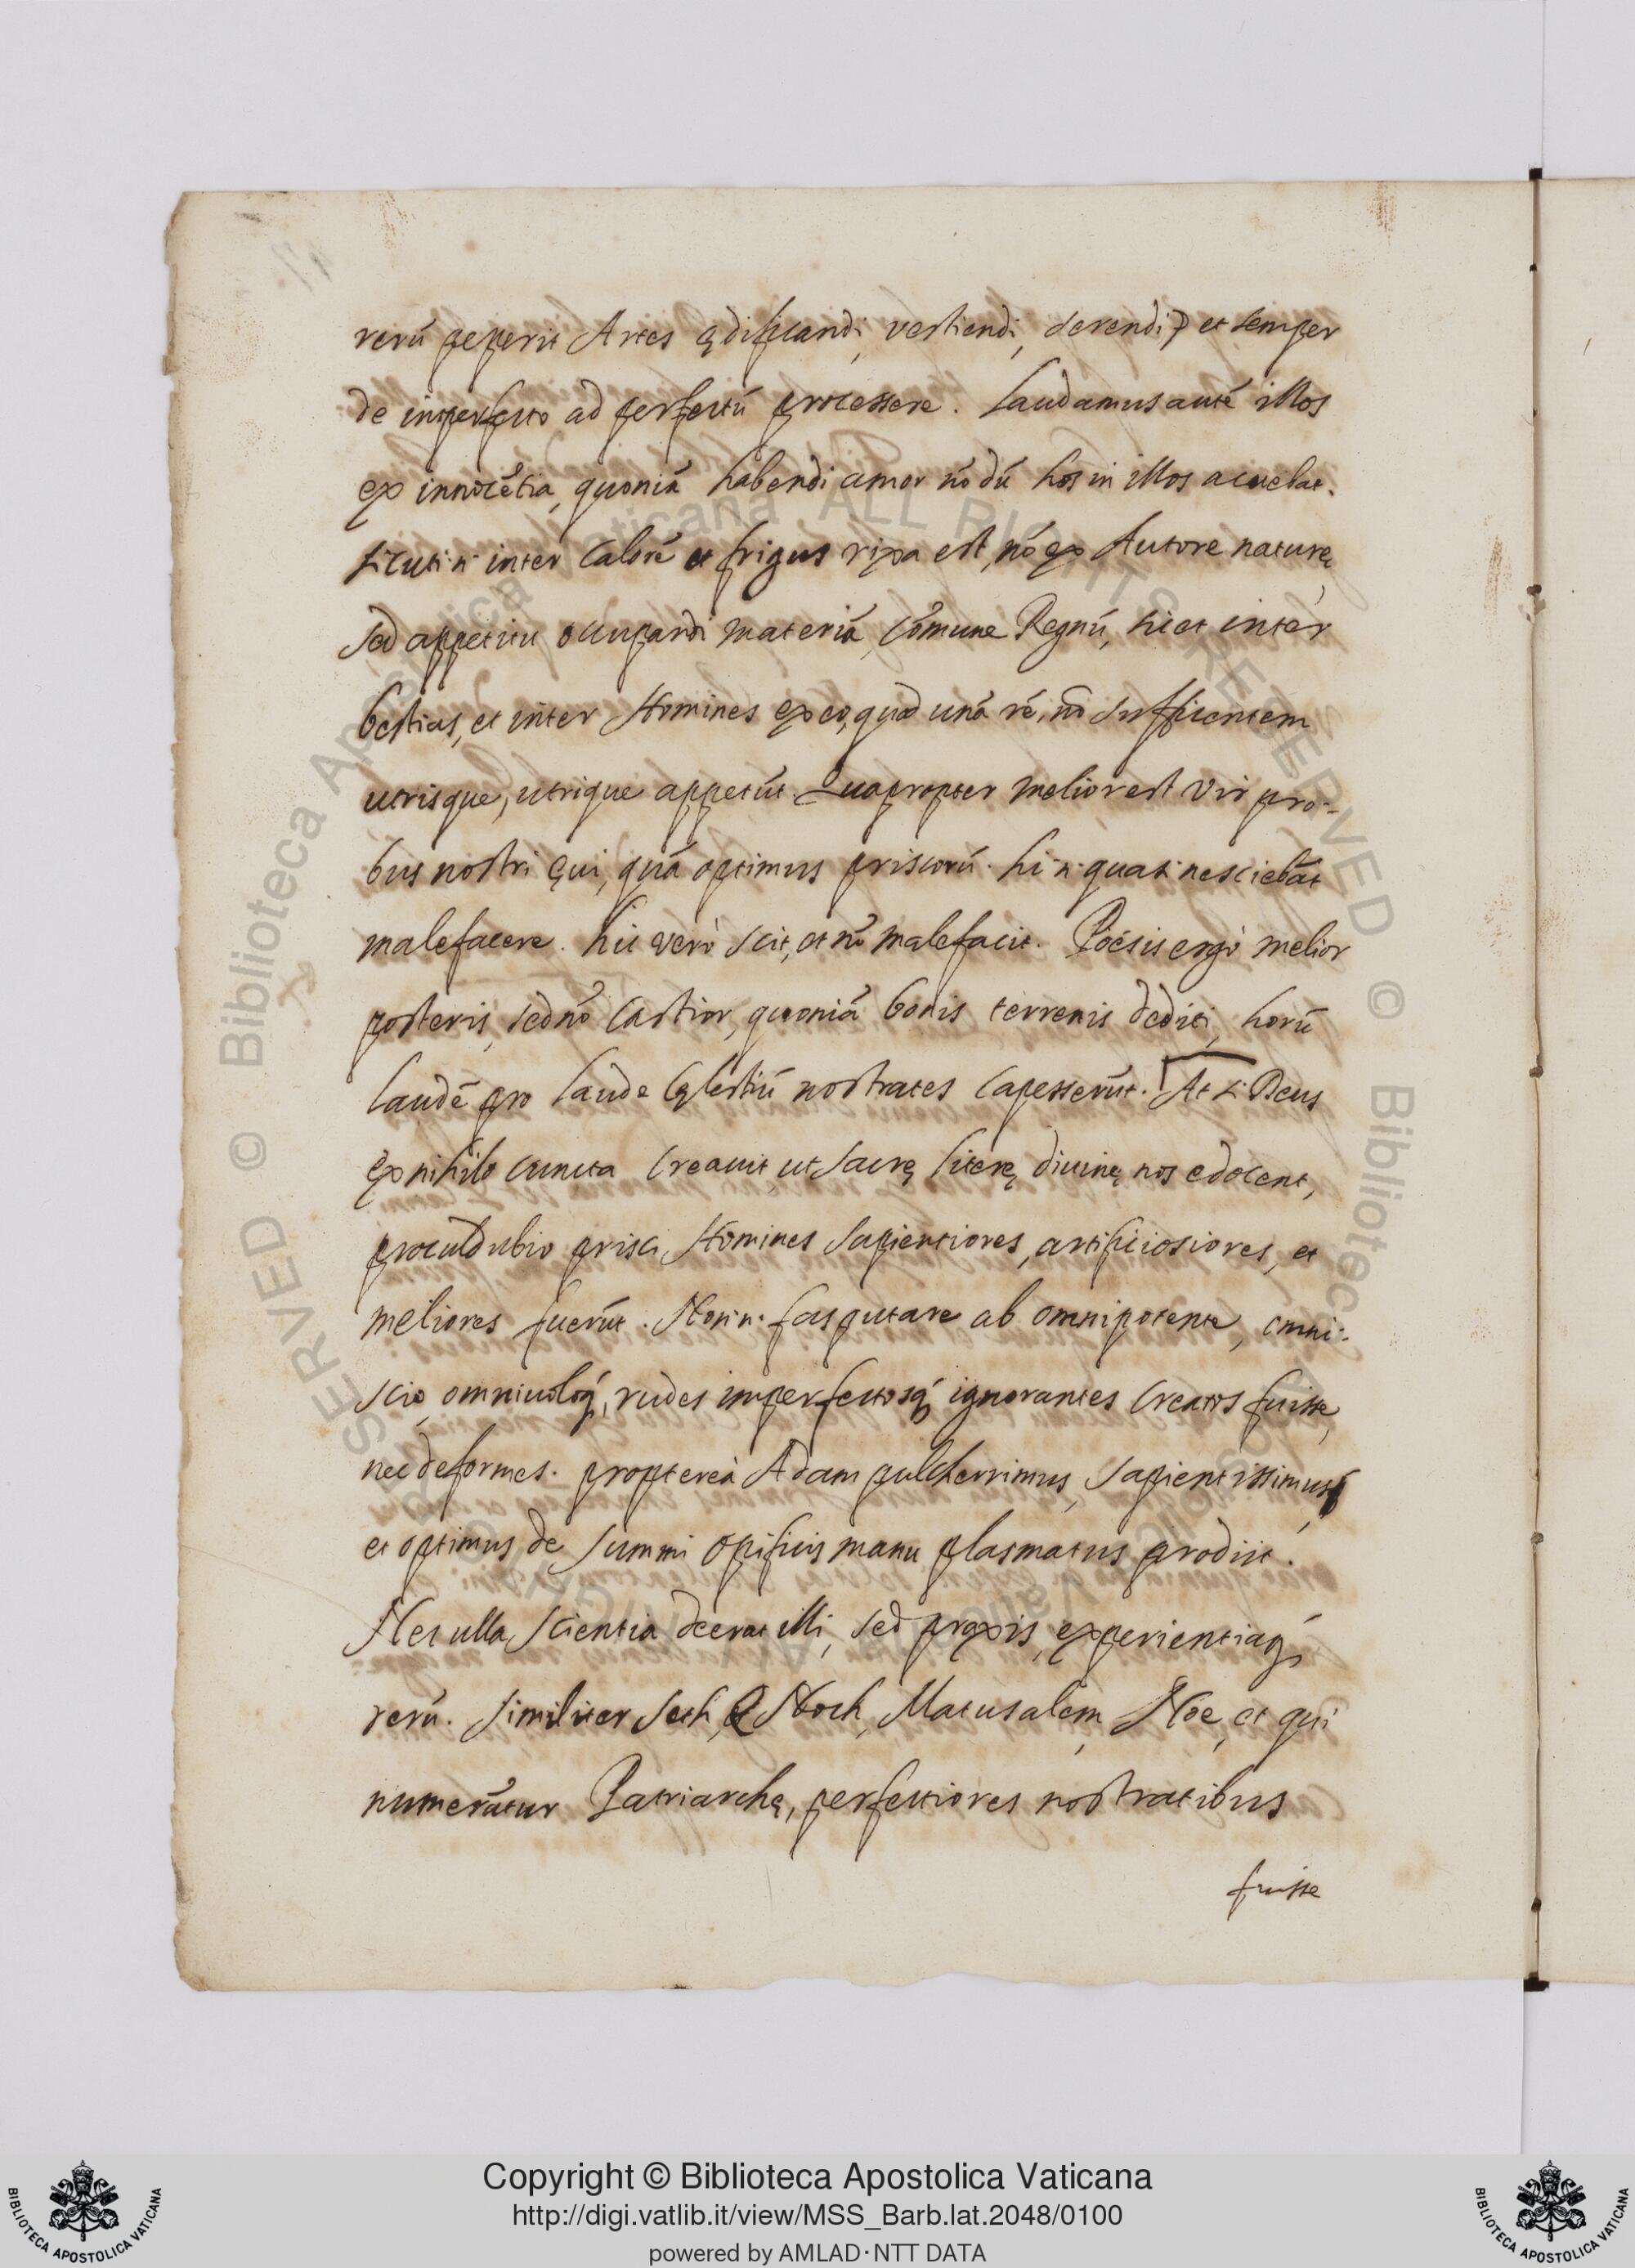 rerū peperit Artes ędificandi, vestiendi, serendi, et semper
de imperfecto ad perfectū processere. Laudamus autē illos
ex innocētia, quoniā habendi amor nō dū hos in illos acuebat.
sicuti .n. inter Calorē et frigus rixa est, nō ex Autore naturę,
sed appetitu occupandi materiā, cōmune Regnū, sic et inter
bestias, et inter Homines ex eo, quod unā rē, nō sufficientem
utrisque, utrique appetūt. Quapropter melior est vir pro-
bus nostri ęui, quā optimus priscorū. hi .n. quasi nesciebāt
malefacere. hic verò scit, et nō malefacit. Poësis ergò melior
posteris, sed nō Castior, quoniā bonis terrenis dediti, horū
laudē pro laude Cęlestiū nostrates Capesserūt. At si Deus
ex nihilo cuncta Creauit, ut sacrę literę diuinę nos edocent,
proculdubio prisci Homines sapientiores, artificiosiores, et
meliores fuerūt. Non .n. fas putare ab omnipotente, omni-
scio, omniuoloq́, rudes imperfectosq́ ignorantes Creatos fuisse,
nec deformes. proptereà Adam pulcherrimus, sapientissimus,
et optimus de summi opificis manu plasmatus prodiit.
Nec ulla scientia deerat illi, sed praxis, experientiaq́
rerū. Similiter Seth, Enoch, Matusalem, Noe, et qui
numerātur Patriarchę, perfectiores nostratibus
fuisse
Copyright © Biblioteca Apostolica Vaticana
http://digi.vatlib.it/view/MSS_Barb.lat.2048/0100
powered by AMLAD·NTT DATA
BIBLIOTECA APOSTOLICA VATICANA
BIBLIOTECA APOSTOLICA VATICANA